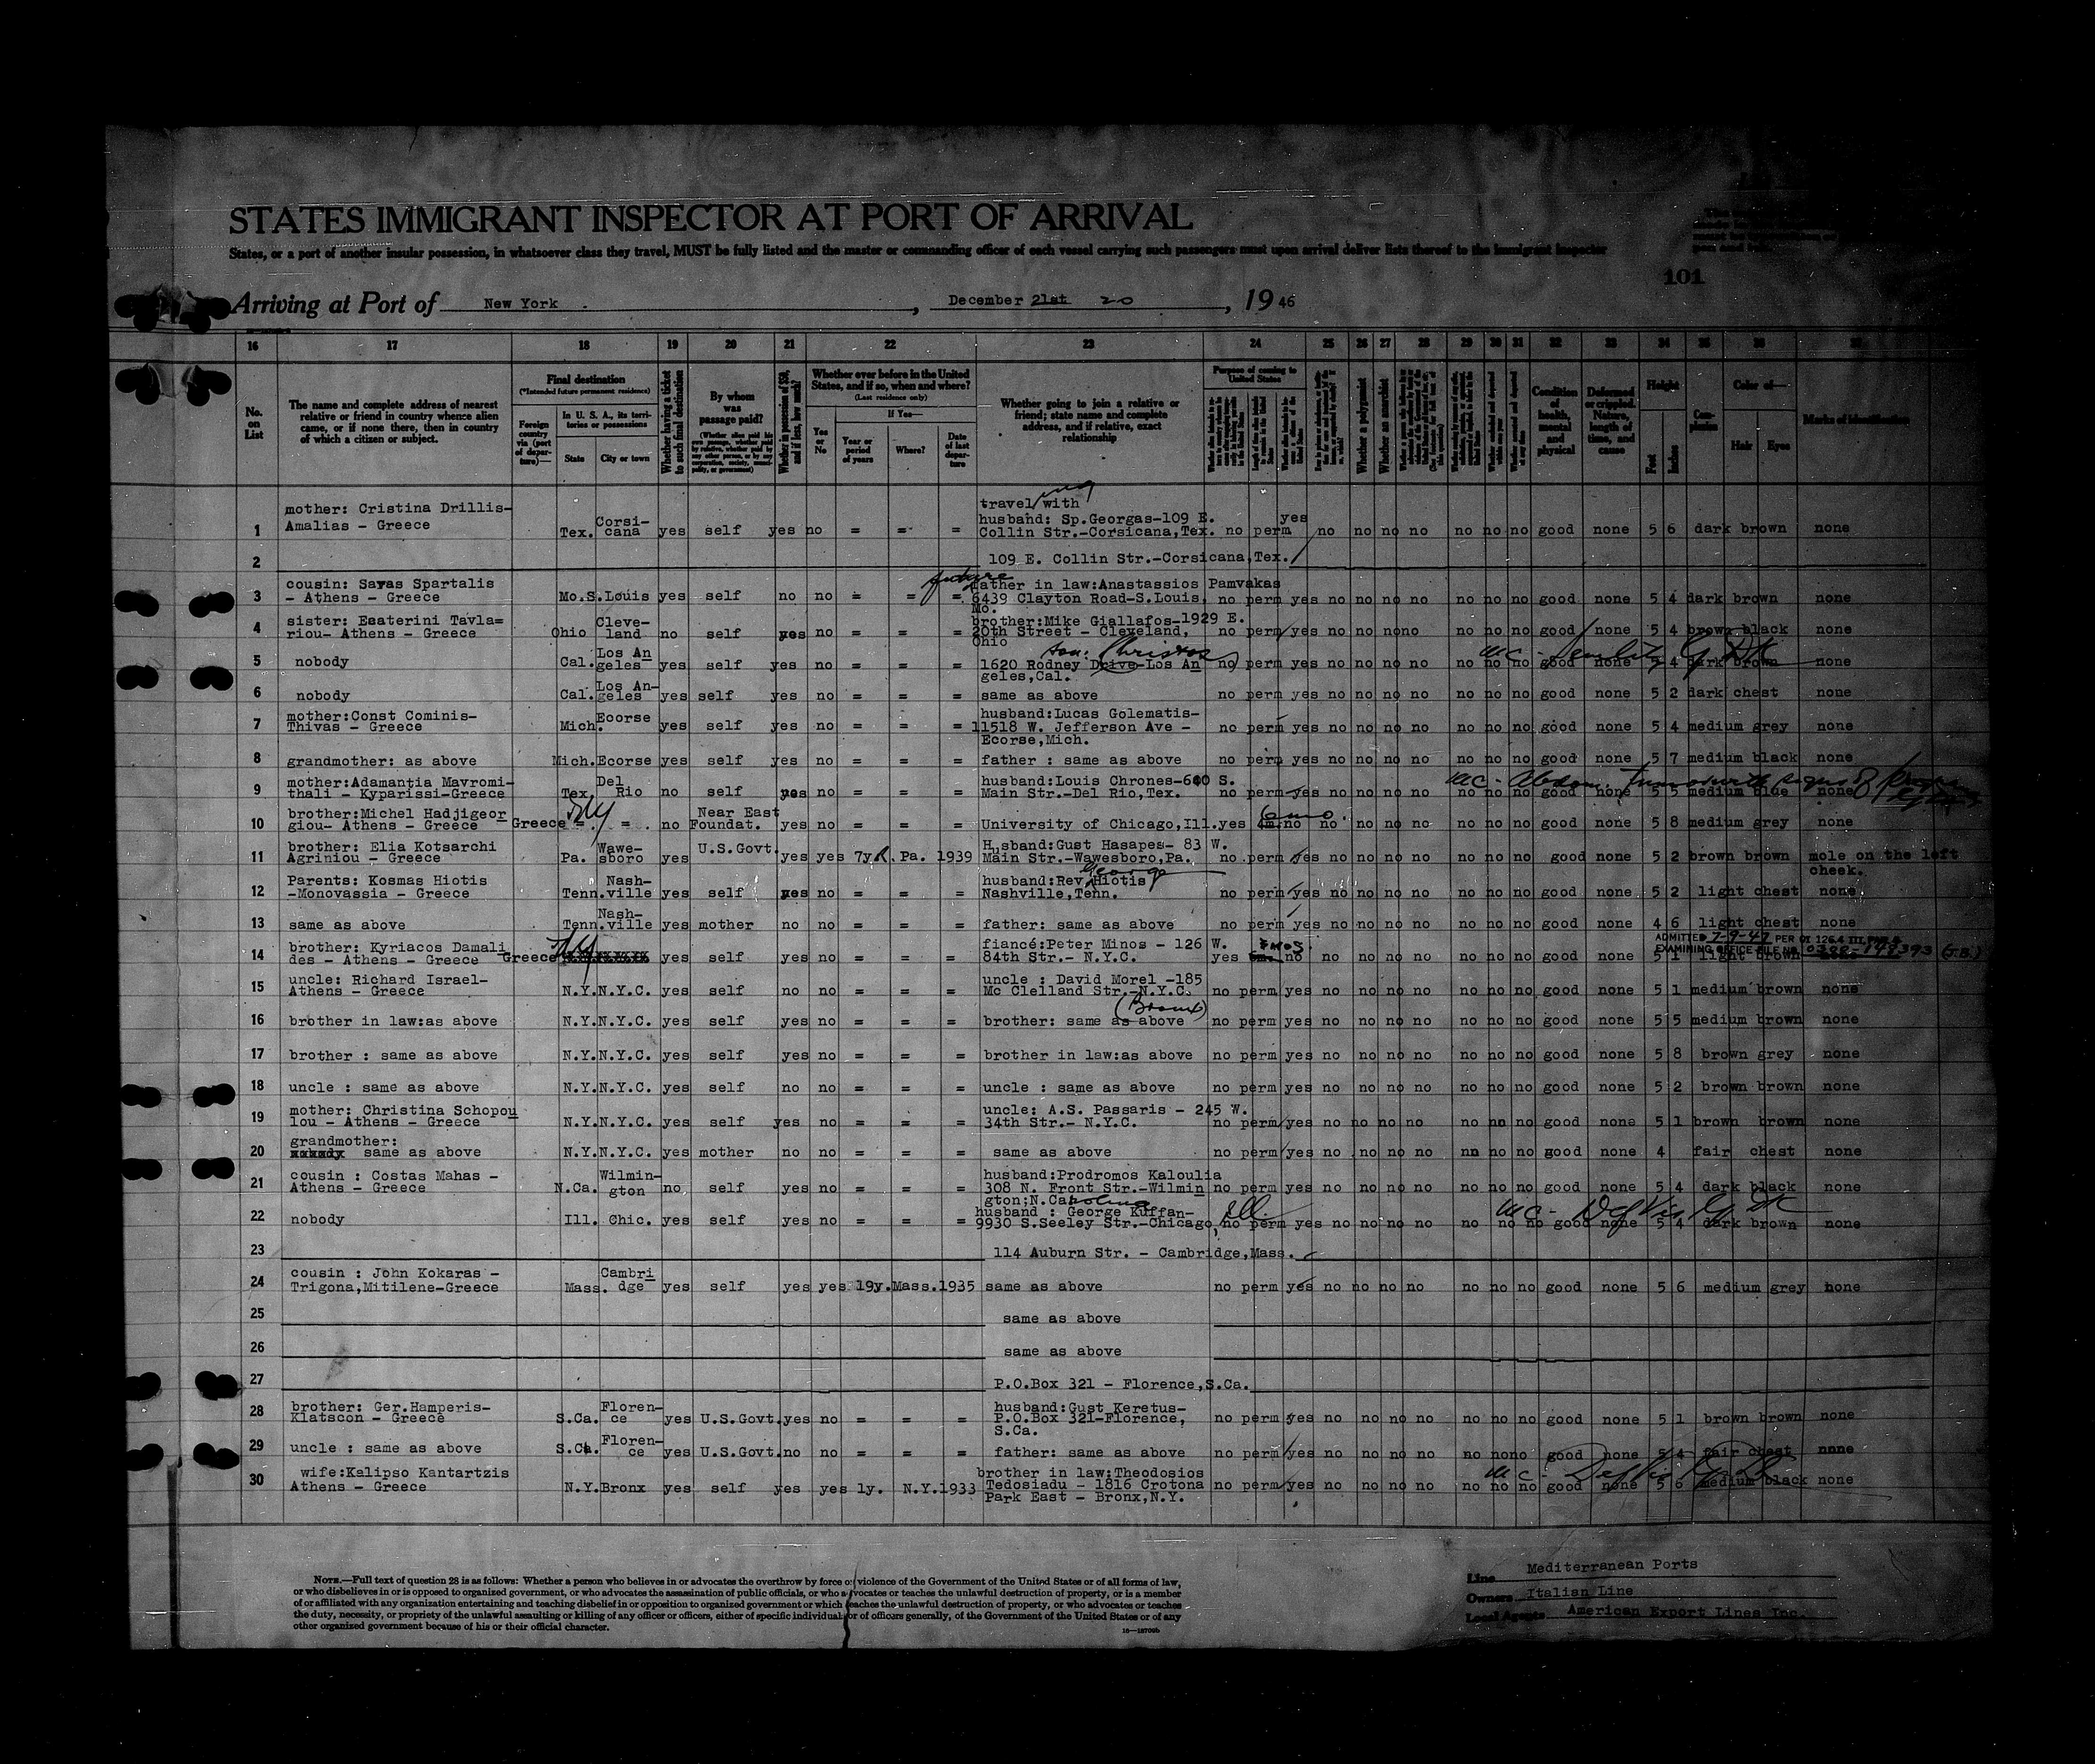 STATES IMMIGRANT INSPECTOR AT PORT OF ARRIVAL
States, or a port of another insular possession, in whatsoever class they travel, MUST be fully listed and the master or commanding officer of each vessel carrying such passengers must upon arrival deliver lists thereof to the immigrant inspector
101
Arriving at Port of New York , December 21st 20 , 1946
16 17 18 19 20 21 22 23 24 25 26 27 28 29 30 31 32 33 34 35 36
No. on List
The name and complete address of nearest relative or friend in country whence alien came, or if none there, then in country of which a citizen or subject.
Final destination
(*Intended future permanent residence)
Foreign country via (port of departure)—
In U. S. A., its territories or possessions
State City or town
Whether having a ticket to such final destination
By whom was passage paid?
Whether in possession of $50, and if less, how much?
Whether ever before in the United States, and if so, when and where?
(Last residence only)
If Yes—
Yes or No
Year or period of years
Where?
Date of last departure
Whether going to join a relative or friend; state name and complete address, and if relative, exact relationship
Purpose of coming to United States
Whether a polygamist
Whether an anarchist
Condition of health, mental and physical
Deformed or crippled. Nature, length of time, and cause
Height
Feet Inches
Complexion
Color of—
Hair Eyes
Marks of identification
1 mother: Cristina Drillis- Amalias - Greece Tex. Corsi-cana yes self yes no = = = travelling with husband: Sp.Georgas-109 E. Collin Str.-Corsicana,Tex. no perm yes no no no no no no no good none 5 6 dark brown none
2 109 E. Collin Str.-Corsicana,Tex.
3 cousin: Savas Spartalis - Athens - Greece Mo. S.Louis yes self no no = = = future father in law:Anastassios Pamvakas 6439 Clayton Road-S.Louis, Mo. no perm yes no no no no no no no good none 5 4 dark brown none
4 sister: Ecaterini Tavla=riou- Athens - Greece Ohio Cleve-land no self yes no = = = brother:Mike Giallafos-1929 E. 20th Street - Cleveland, Ohio no perm yes no no no no no no no good none 5 4 brown black none
5 nobody Cal. Los An geles yes self yes no = = = son: Christos 1620 Rodney Drive-Los An geles,Cal. no perm yes no no no no no no no good none 5 4 dark brown none
6 nobody Cal. Los An-geles yes self yes no = = = same as above no perm yes no no no no no no no good none 5 2 dark chest none
7 mother:Const Cominis- Thivas - Greece Mich. Ecorse yes self yes no = = = husband:Lucas Golematis- 11518 W. Jefferson Ave - Ecorse,Mich. no perm yes no no no no no no no good none 5 4 medium grey none
8 grandmother: as above Mich. Ecorse yes self yes no = = = father : same as above no perm yes no no no no no no no good none 5 7 medium black none
9 mother:Adamantia Mavromi-thali - Kyparissi-Greece Tex. Del Rio no self yes no = = = husband:Louis Chrones-600 S. Main Str.-Del Rio,Tex. no perm yes no no no no no no no good none 5 5 medium blue none
10 brother:Michel Hadjigeor giou- Athens - Greece Greece = = NY no Near East Foundat. yes no = = = University of Chicago,Ill. yes 6mo. no no no no no no no no good none 5 8 medium grey none
11 brother: Elia Kotsarchi Agriniou - Greece Pa. Wawe-sboro yes U.S.Govt. yes yes 7y. Pa. 1939 Husband:Gust Hasapes- 83 W. Main Str.-Wawesboro,Pa. no perm yes no no no no no no no good none 5 2 brown brown mole on the left cheek.
12 Parents: Kosmas Hiotis -Monovassia - Greece Tenn. Nash-ville yes self yes no = = = husband:Rev. George Hiotis Nashville,Tenn. no perm yes no no no no no no no good none 5 2 light chest none
13 same as above Tenn. Nash-ville yes mother no no = = = father: same as above no perm yes no no no no no no no good none 4 6 light chest none
ADMITTED 7-9-47 PER
EXAMINING OFFICE FILE NO. 0300-
14 brother: Kyriacos Damali des - Athens - Greece Greece NY yes self yes no = = = fiancé:Peter Minos - 126 W. 84th Str.- N.Y.C. yes no no no no no no no no good none 5 1 light brown none
15 uncle: Richard Israel- Athens - Greece N.Y. N.Y.C. yes self no no = = = uncle : David Morel -185 Mc Clelland Str.-N.Y.C. (Bronx) no perm yes no no no no no no no good none 5 1 medium brown none
16 brother in law:as above N.Y. N.Y.C. yes self yes no = = = brother: same as above no perm yes no no no no no no no good none 5 5 medium brown none
17 brother : same as above N.Y. N.Y.C. yes self yes no = = = brother in law:as above no perm yes no no no no no no no good none 5 8 brown grey none
18 uncle : same as above N.Y. N.Y.C. yes self no no = = = uncle : same as above no perm yes no no no no no no no good none 5 2 brown brown none
19 mother: Christina Schopou lou - Athens - Greece N.Y. N.Y.C. yes self yes no = = = uncle: A.S. Passaris - 245 W. 34th Str.- N.Y.C. no perm yes no no no no no no no good none 5 1 brown brown none
20 grandmother: same as above N.Y. N.Y.C. yes mother no no = = = same as above no perm yes no no no no nn no no good none 4 fair chest none
21 cousin : Costas Mahas - Athens - Greece N.Ca. Wilmin-gton no self yes no = = = husband:Prodromos Kaloulia 308 N. Front Str.-Wilmin gton;N.Carolina no perm yes no no no no no no no good none 5 4 dark black none
22 nobody Ill. Chic. yes self yes no = = = husband : George Kuffan- 9930 S.Seeley Str.-Chicago, Ill. no perm yes no no no no no no no good none 5 4 dark brown none
23 114 Auburn Str. - Cambridge,Mass.
24 cousin : John Kokaras - Trigona,Mitilene-Greece Mass. Cambri dge yes self yes yes 19y. Mass. 1935 same as above no perm yes no no no no no no no good none 5 6 medium grey none
25 same as above
26 same as above
27 P.O.Box 321 - Florence,S.Ca.
28 brother: Ger.Hamperis- Klatscon - Greece S.Ca. Floren-ce yes U.S.Govt. yes no = = = husband:Gust Keretus- P.O.Box 321-Florence, S.Ca. no perm yes no no no no no no no good none 5 1 brown brown none
29 uncle : same as above S.Ca. Floren-ce yes U.S.Govt. no no = = = father: same as above no perm yes no no no no no nono good none 5 4 fair chest none
30 wife:Kalipso Kantartzis Athens - Greece N.Y. Bronx yes self yes yes 1y. N.Y. 1933 brother in law:Theodosios Tedosiadu - 1816 Crotona Park East - Bronx,N.Y. no perm yes no no no no no no no good none 5 6 medium black none
NOTE.—Full text of question 28 is as follows: Whether a person who believes in or advocates the overthrow by force or violence of the Government of the United States or of all forms of law,
or who disbelieves in or is opposed to organized government, or who advocates the assassination of public officials, or who advocates or teaches the unlawful destruction of property, or is a member
of or affiliated with any organization entertaining and teaching disbelief in or opposition to organized government or which teaches the unlawful destruction of property, or who advocates or teaches
the duty, necessity, or propriety of the unlawful assaulting or killing of any officer or officers, either of specific individuals or of officers generally, of the Government of the United States or of any
other organized government because of his or their official character.
Line Mediterranean Ports
Owners Italian Line
Local Agents American Export Lines Inc.